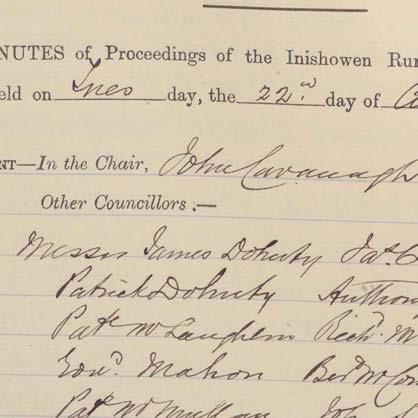 NUTES of Proceedings of the Inishowen Rur
eld on Tues day, the 22nd day of
NT—In the Chair, John Cavanagh
Other Councillors :—
Messrs James Doherty Jas.
Patrick Doherty Anthon
Patk McLaughlin Richd. M
Edwd. Mahon Bernd McCon
Pat McMullan John